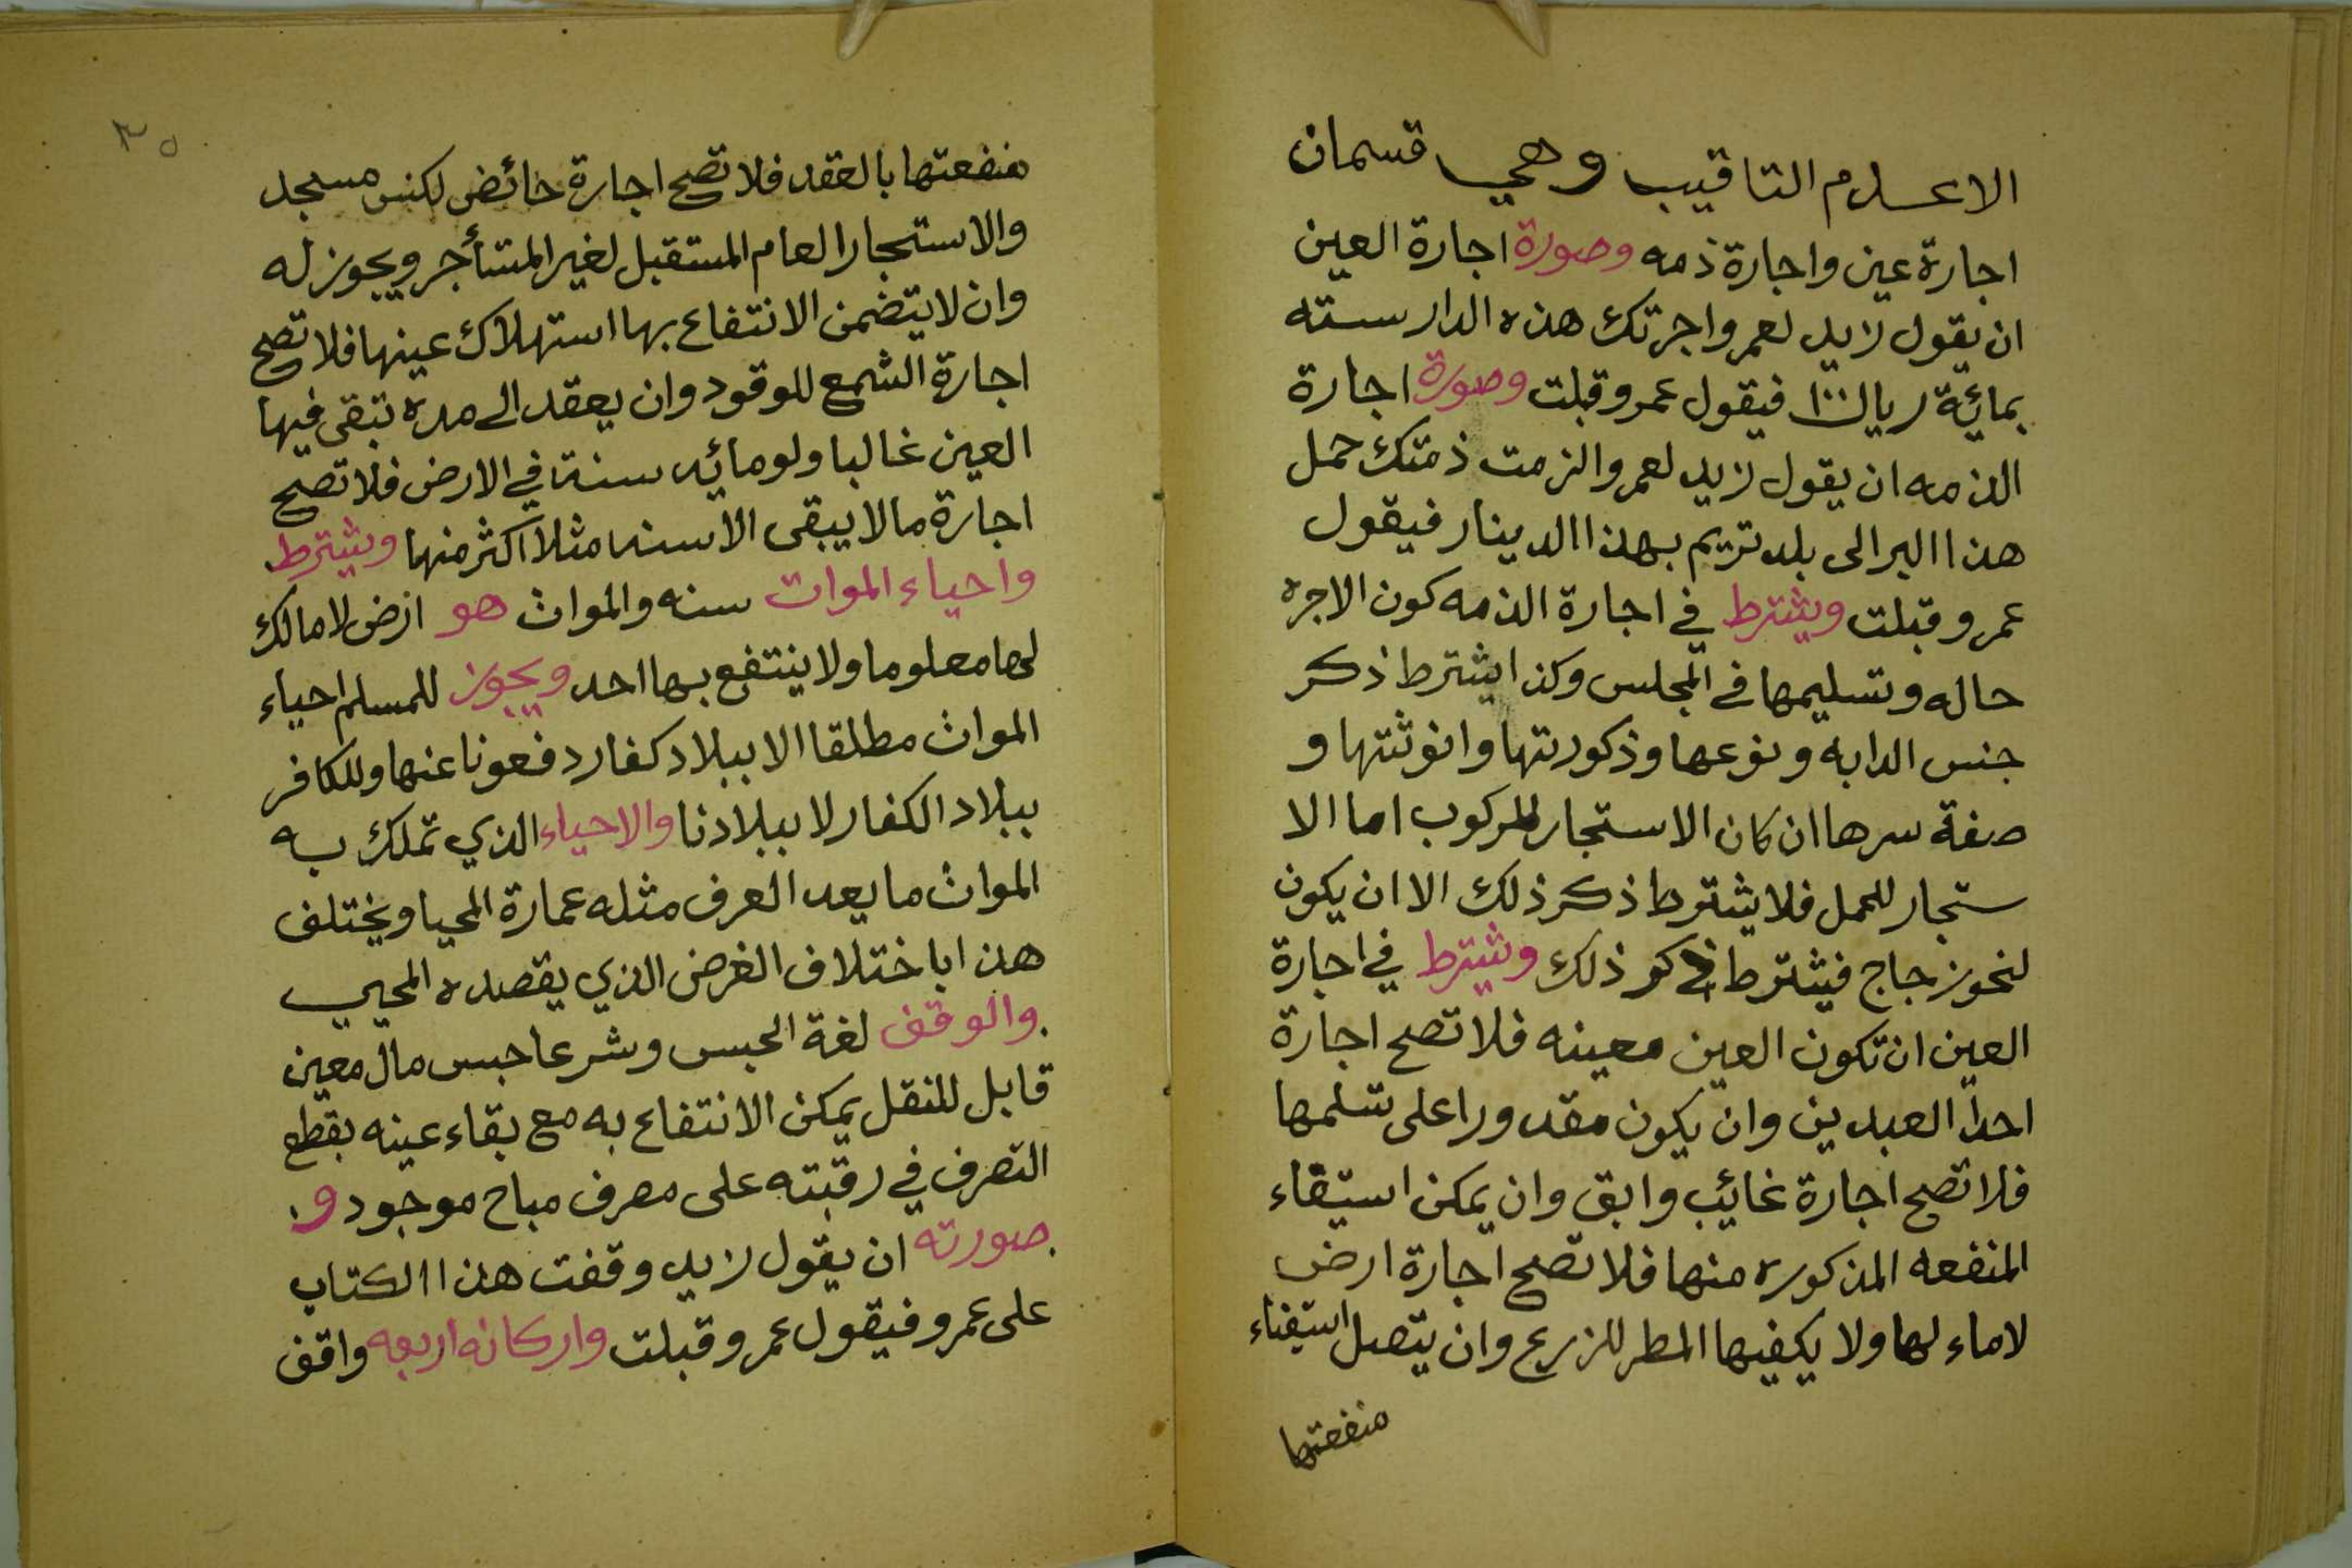 الاعلام التاقيت وهي قسمان
اجارة عين واجارة ذمه وصورة اجارة العين
ان يقول زيد لعمرو اجرتك هذه الدار سته
بمائة ريال ١٠٠ فيقول عمرو قبلت وصورة اجارة
الذمه ان يقول زيد لعمرو الزمت ذمتك حمل
هذا البر الى بلد تريم بهذا الدينار فيقول
عمرو قبلت ويشترط في اجارة الذمه كون الاجره
حاله وتسليمها في المجلس وكذا يشترط ذكر
جنس الدابه ونوعها وذكورتها وانوثتها و
صفة سرها ان كان الاستجار للركوب اما الا
ستجار للحمل فلا يشترط ذكر ذلك الا ان يكون
لنحو زجاج فيشترط ذكر ذلك وشترط في اجارة
العين ان تكون العين معينه فلا تصح اجارة
احدا العبدين وان يكون مقدورا على تسلمها
فلا تصح اجارة غائب وابق وان يمكن استيقاء
المنفعه المذكوره منها فلا تصح اجارة ارض
لا ماء لها ولا يكفيها المطر للزرع وان يتصل استيفاء
منفعتها
٣٥
منفعتها بالعقد فلا تصح اجارة حائض لكنس مسجد
والاستجار العام المستقبل لغير المستأجر ويجوز له
وان لا يتضمن الانتفاع بها استهلاك عينها فلا تصح
اجارة الشمع للوقود وان يعقد الى مده تبقى فيها
العين غالبا ولو مائه سنة في الارض فلا تصح
اجارة مالا يبقى الا سنه مثلا اكثر منها ويشترط
واحياء الموات سنه والموات هو ارض لا مالك
لها معلوما ولا ينتفع بها احد ويجوز للمسلم احياء
الموات مطلقا الا ببلاد كفار دفعونا عنها وللكافر
ببلاد الكفار لا ببلادنا والاحياء الذي تملك به
الموات ما يعد العرف مثله عمارة المحيا ويختلف
هذا باختلاف الغرض الذي يقصده المحيي
والوقف لغة الحبس وشرعا حبس مال معين
قابل للنقل يمكن الانتفاع به مع بقاء عينه بقطع
التصرف في رقبته على مصرف مباح موجود و
صورته ان يقول زيد وقفت هذا الكتاب
على عمرو فيقول عمرو قبلت واركانه اربعه واقف